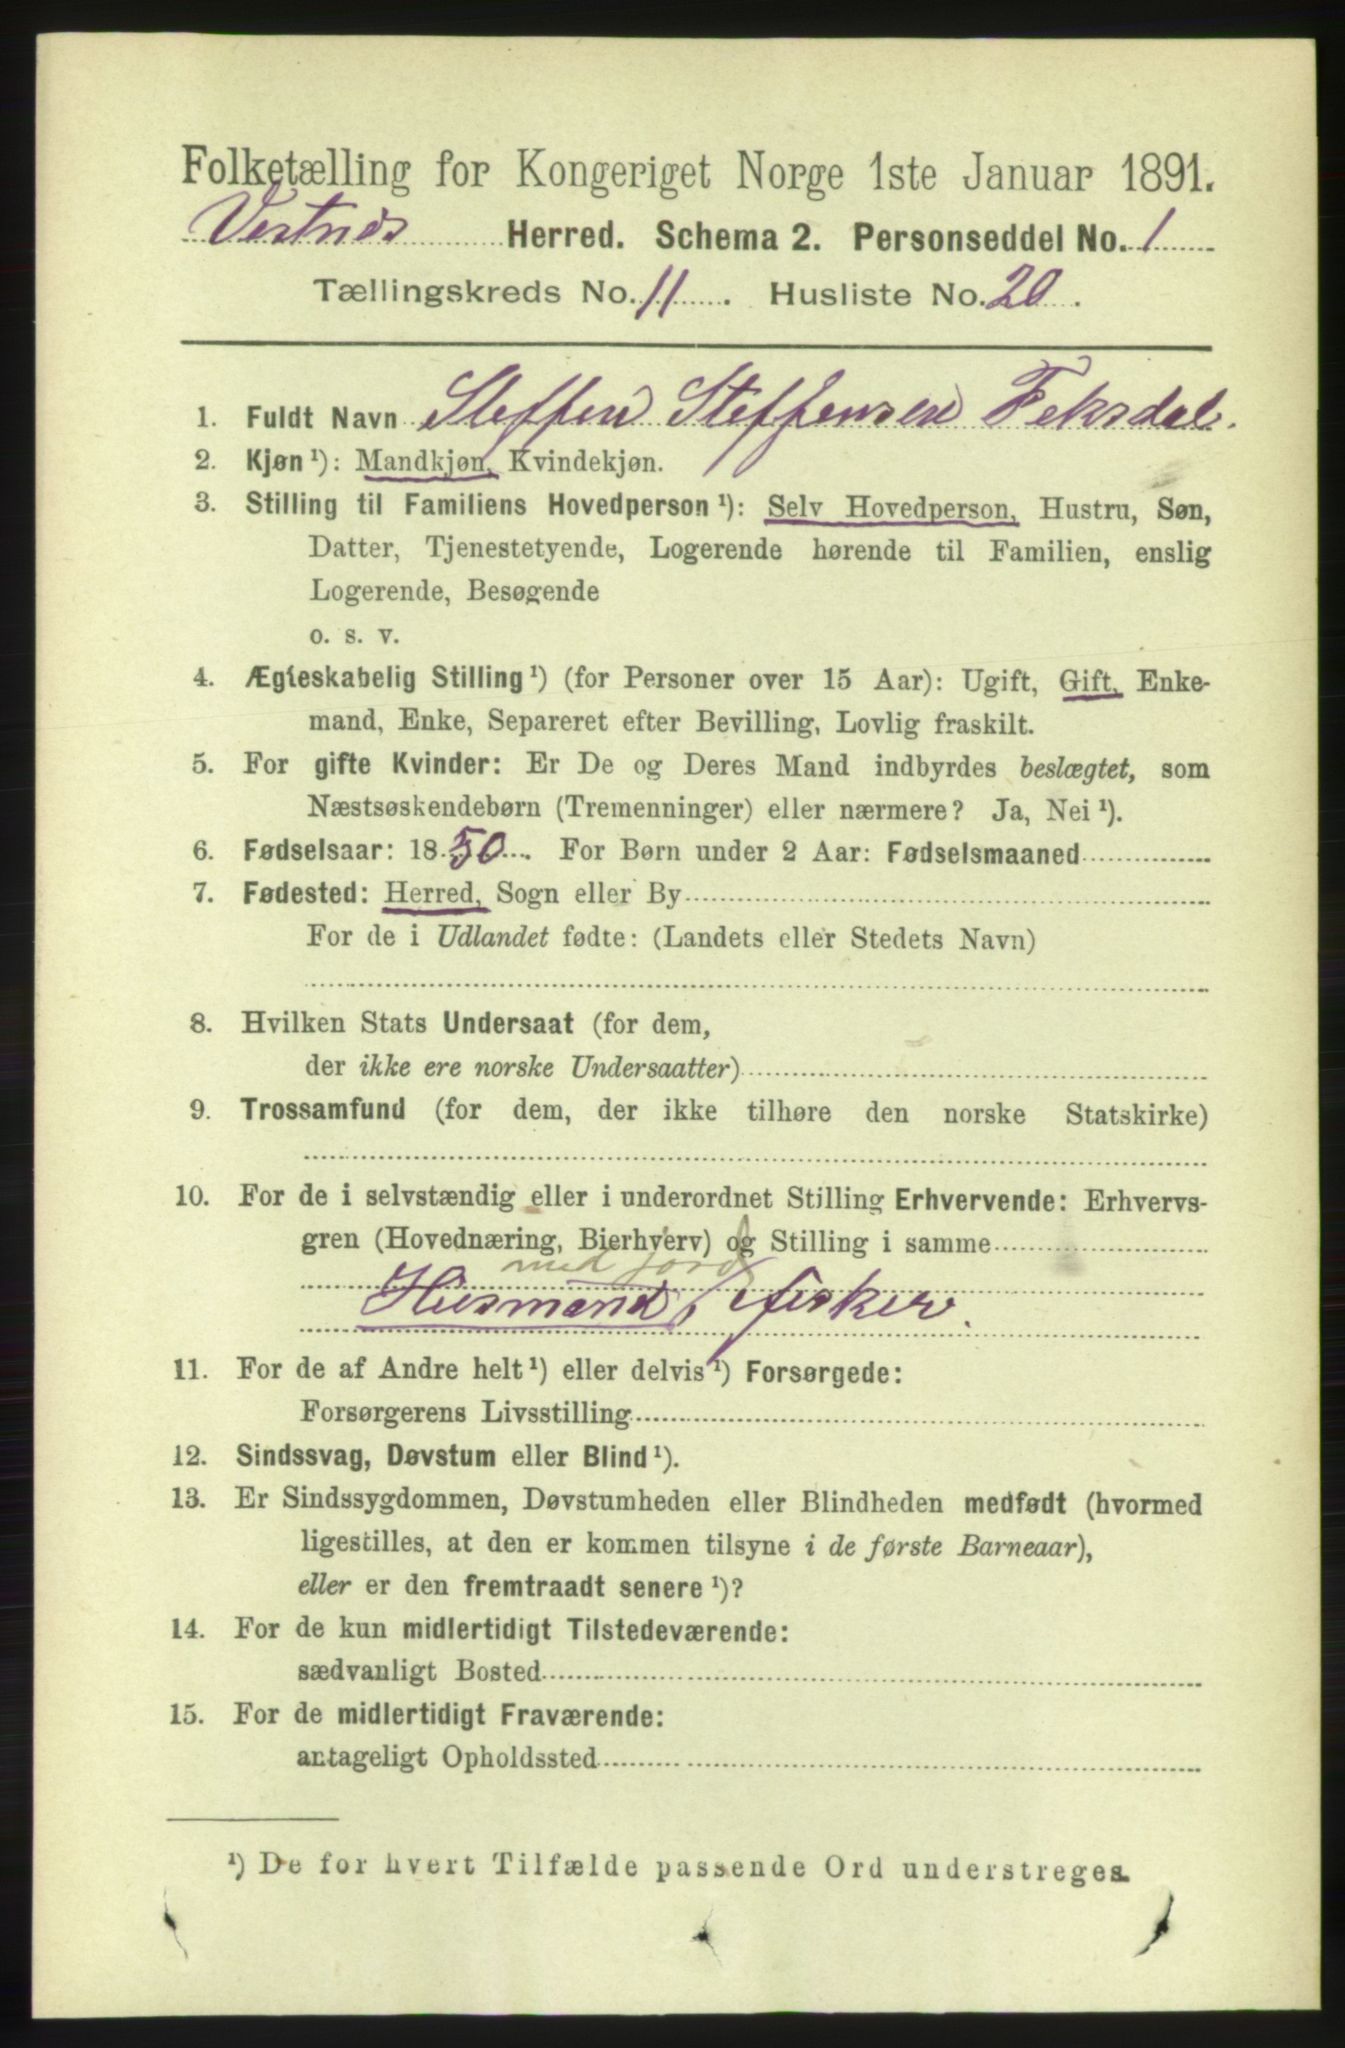 Folketælling for Kongeriget Norge 1ste Januar 1891.
Vestnes Herred. Schema 2. Personseddel No. 1
Tællingskreds No. 11. Husliste No. 20.
1. Fuldt Navn Steffen Steffensen Feksdal.
2. Kjøn¹): Mandkjøn, Kvindekjøn.
3. Stilling til Familiens Hovedperson¹): Selv Hovedperson, Hustru, Søn,
Datter, Tjenestetyende, Logerende hørende til Familien, enslig
Logerende, Besøgende
o. s. v.
4. Ægteskabelig Stilling¹) (for Personer over 15 Aar): Ugift, Gift, Enke-
mand, Enke, Separeret efter Bevilling, Lovlig fraskilt.
5. For gifte Kvinder: Er De og Deres Mand indbyrdes beslægtet, som
Næstsøskendebørn (Tremenninger) eller nærmere? Ja, Nei¹).
6. Fødselsaar: 1850. For Børn under 2 Aar: Fødselsmaaned
7. Fødested: Herred, Sogn eller By
For de i Udlandet fødte: (Landets eller Stedets Navn)
8. Hvilken Stats Undersaat (for dem,
der ikke ere norske Undersaatter)
9. Trossamfund (for dem, der ikke tilhøre den norske Statskirke)
10. For de i selvstændig eller i underordnet Stilling Erhvervende: Erhvervs-
gren (Hovednæring, Bierhverv) og Stilling i samme
med jord
Husmand, fisker.
11. For de af Andre helt¹) eller delvis¹) Forsørgede:
Forsørgerens Livsstilling
12. Sindssvag, Døvstum eller Blind¹).
13. Er Sindssygdommen, Døvstumheden eller Blindheden medfødt (hvormed
ligestilles, at den er kommen tilsyne i de første Barneaar),
eller er den fremtraadt senere¹)?
14. For de kun midlertidigt Tilstedeværende:
sædvanligt Bosted
15. For de midlertidigt Fraværende:
antageligt Opholdssted
¹) De for hvert Tilfælde passende Ord understreges.